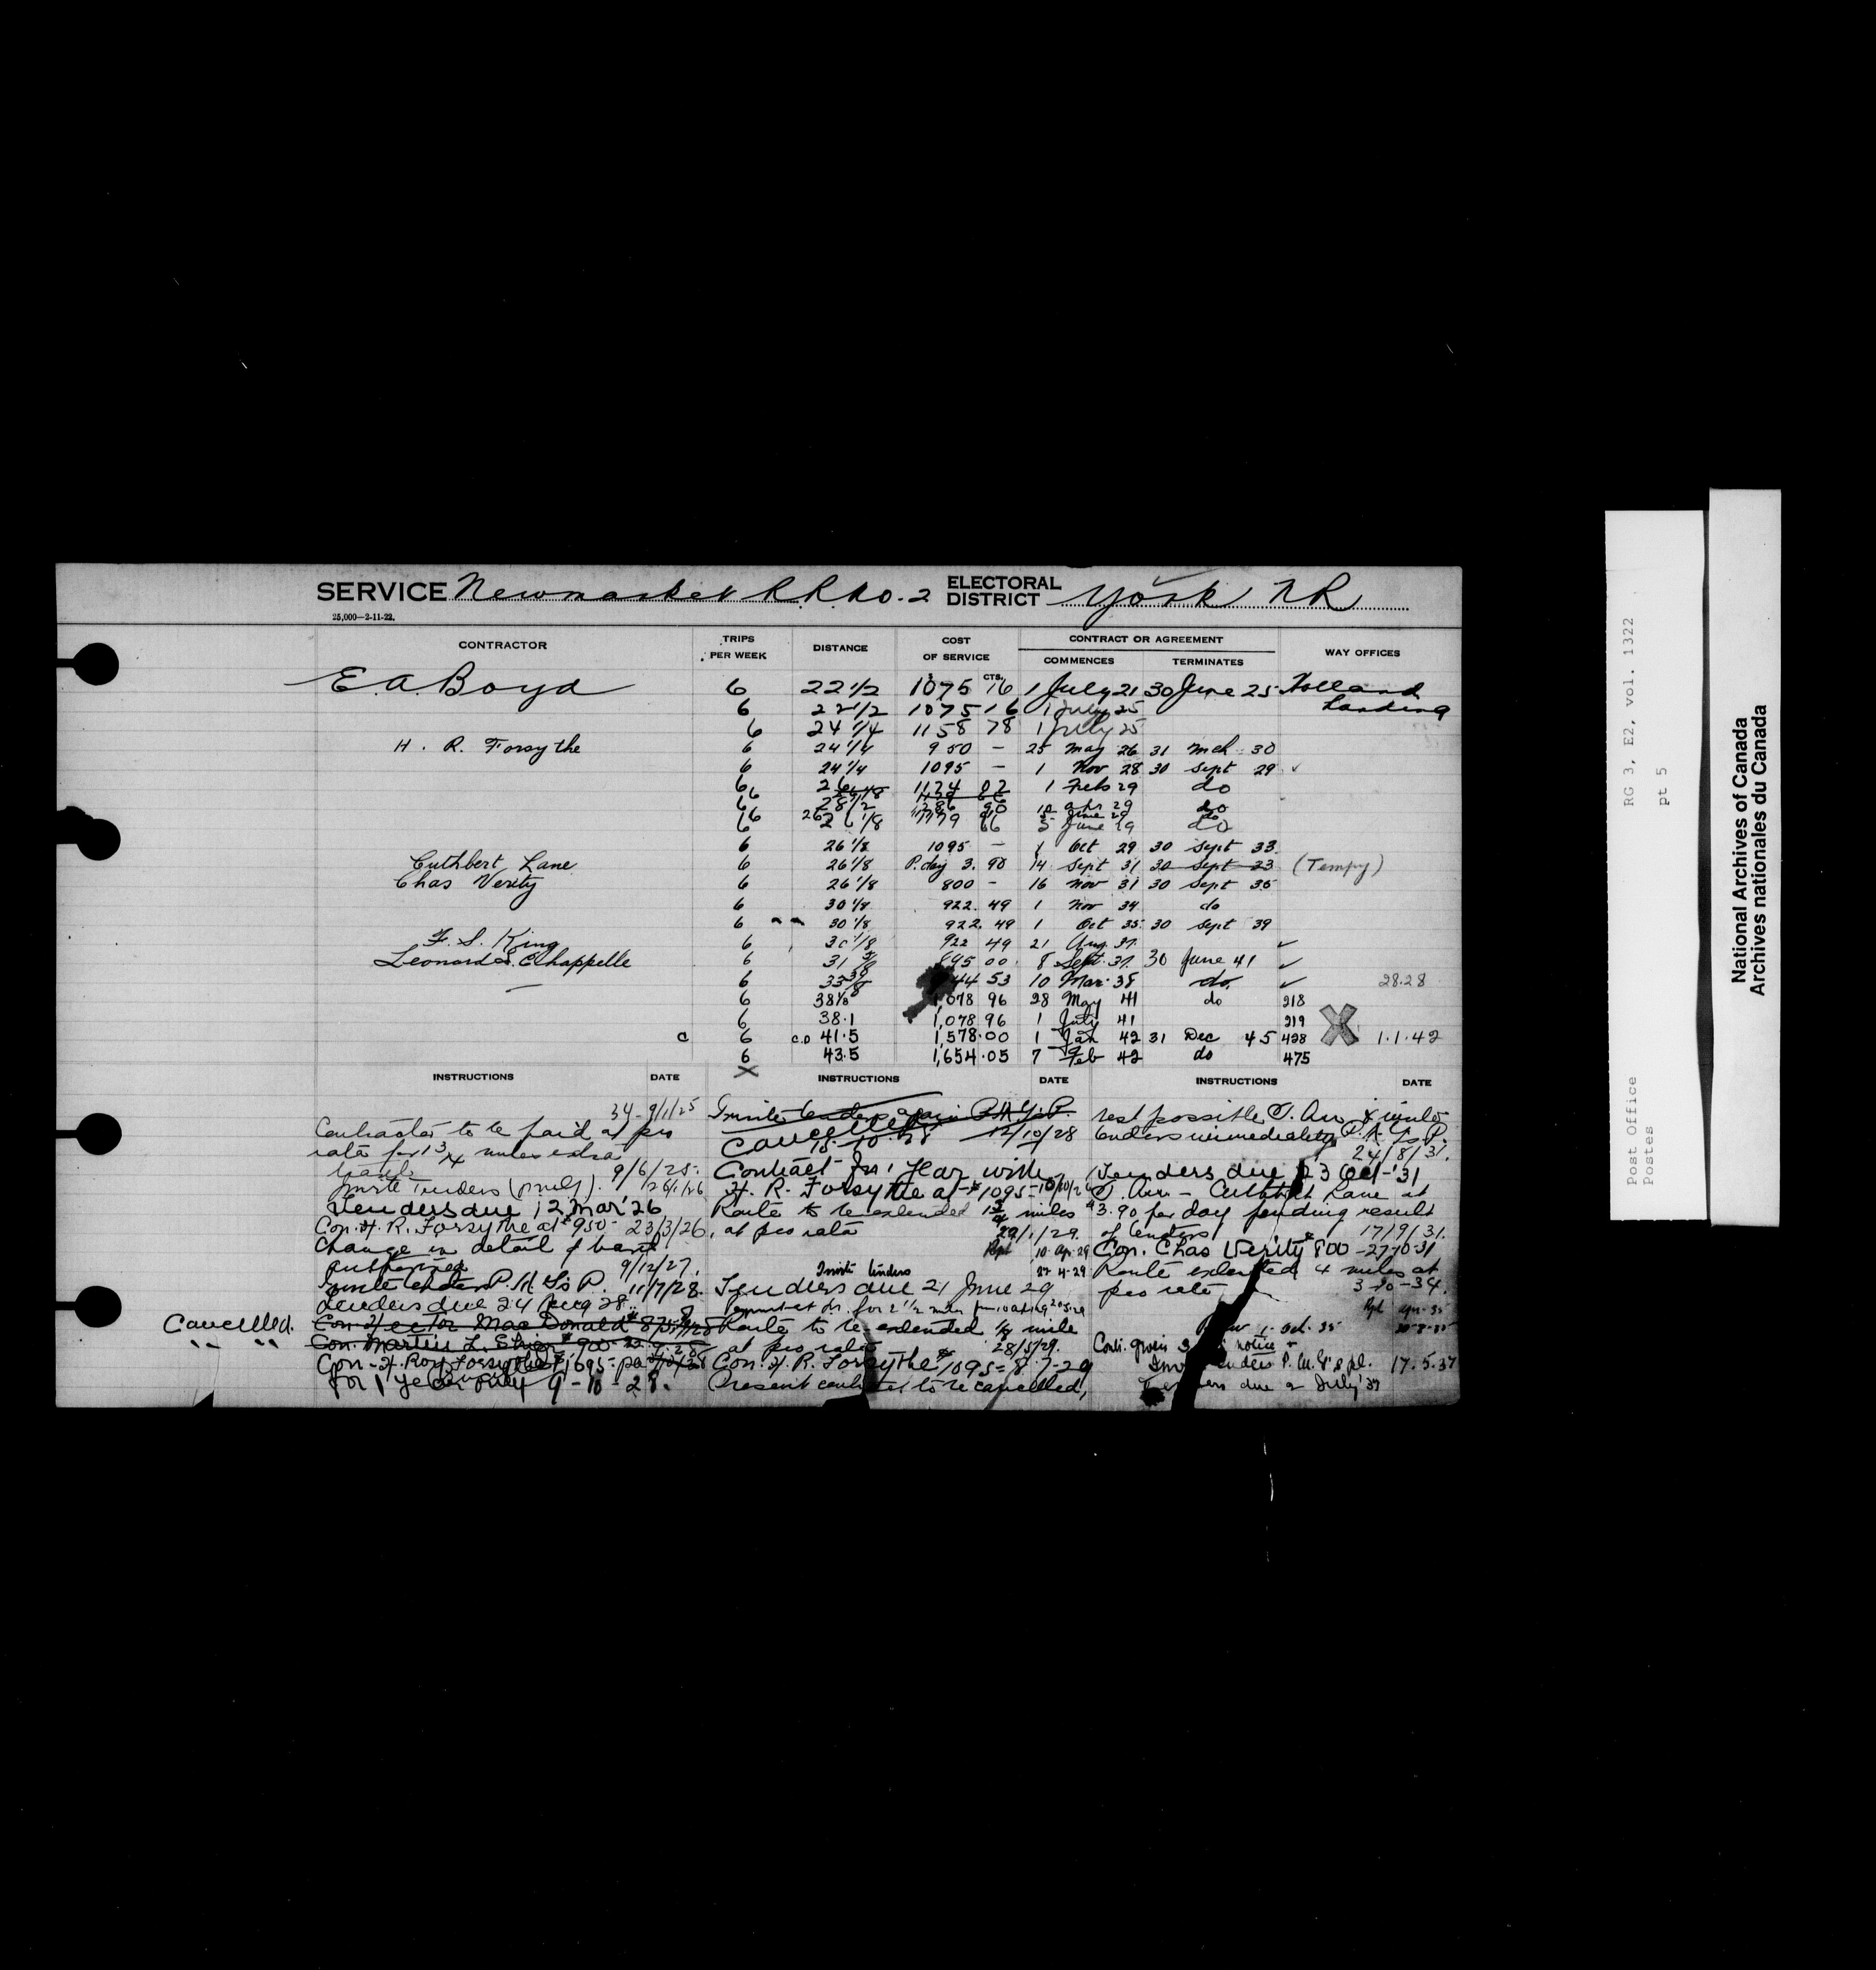 SERVICE Newmarket R.R. No. 2 ELECTORAL DISTRICT York N R
25,000—2-11-22.
CONTRACTOR TRIPS PER WEEK DISTANCE COST OF SERVICE CONTRACT OR AGREEMENT COMMENCES TERMINATES WAY OFFICES
E. A. Boyd 6 22 1/2 1075 CTS. 16 1 July 21 30 June 25 Holland
6 22 1/2 1075 16 1 July 25 Landing
6 24 1/4 1158 78 1 July 25
H. R. Forsythe 6 24 1/4 950 — 25 May 26 31 Mch 30
6 24 1/4 1095 — 1 Nov 28 30 Sept 29
6 26 1174 02 1 Feb 29 do
6 28 1/2 1286 90 10 Apr 29 do
6 26 1/8 1179 66 5 June 29 do
6 26 1/8 1095 — 1 Oct 29 30 Sept 33
Cuthbert Lane 6 26 1/8 P. day 3.90 14 Sept 31 30 Sept 23 (Tempy)
Chas Verity 6 26 1/8 800 - 16 Nov 31 30 Sept 35
6 30 1/8 922.49 1 Nov 34 do
6 30 1/8 922.49 1 Oct 35 30 Sept 39
F. S. King 6 30 1/8 922 49 21 Aug. 37
Leonard S. Chappelle 6 31 95 00 8 Sept. 37 30 June 41
6 33 44 53 10 Mar. 38 do 28.28
6 38 1/8 1,078 96 28 May 41 do 218
6 38.1 1,078 96 1 July 41 219
c 6 c.o 41.5 1,578.00 1 Jan 42 31 Dec 45 428 X 1.1.42
6 43.5 1,654.05 7 Feb 42 do 475
X
INSTRUCTIONS DATE
34-9/1/25
Contractor to be paid at pro
rata for 1 3/4 miles extra
travel 9/6/25.
Invite Tenders 26/1/26
Tenders due 12 Mar '26
Con. H. R. Forsythe at $950- 23/3/26
Change in detail of travel
authorized 9/12/27.
Invite tenders P.M. Gs P. 11/7/28.
Tenders due 24 Aug 28.
Cancelled. Con. Hector MacDonald
" " Con. Martin L. 900
Con. H. Roy Forsythe $1,095-
for 1 year only 9-10-28.
INSTRUCTIONS DATE
Invite tenders again P.M.Gs P. 12/10/28
Cancelled 15-10-28
Contract for 1 year with
H. R. Forsythe at $1095-
Route to be extended 1 3/4 miles
at pro rata 29/1/29.
Rpt 10-Ap-29
Invite tenders 27-4-29
Tenders due 21 June 29
for 2 1/2 miles from 10 Apr 29
Route to be extended 1/8 mile
at pro rata 28/5/29.
Con. H. R. Forsythe $1095- 8-7-29
Present contract to be cancelled,
INSTRUCTIONS DATE
best possible T. Arr. & invite
tenders immediately P.M. Gs P.
24/8/31.
Tenders due 23 Oct-'31
T. Arr - Cuthbert Lane at
$3.90 per day pending result
of tenders 17/9/31.
Con. Chas Verity $800 - 27-10-31
Route extended 4 miles at
pro rata 3-10-34.
Rpt Apr. 35
1. Oct. 35
Cont. given 3 notice &
tenders P.M.G's pl. 17.5.37
due 2 July '37
RG 3, E2, vol. 1322
pt 5
Post Office
Postes
National Archives of Canada
Archives nationales du Canada